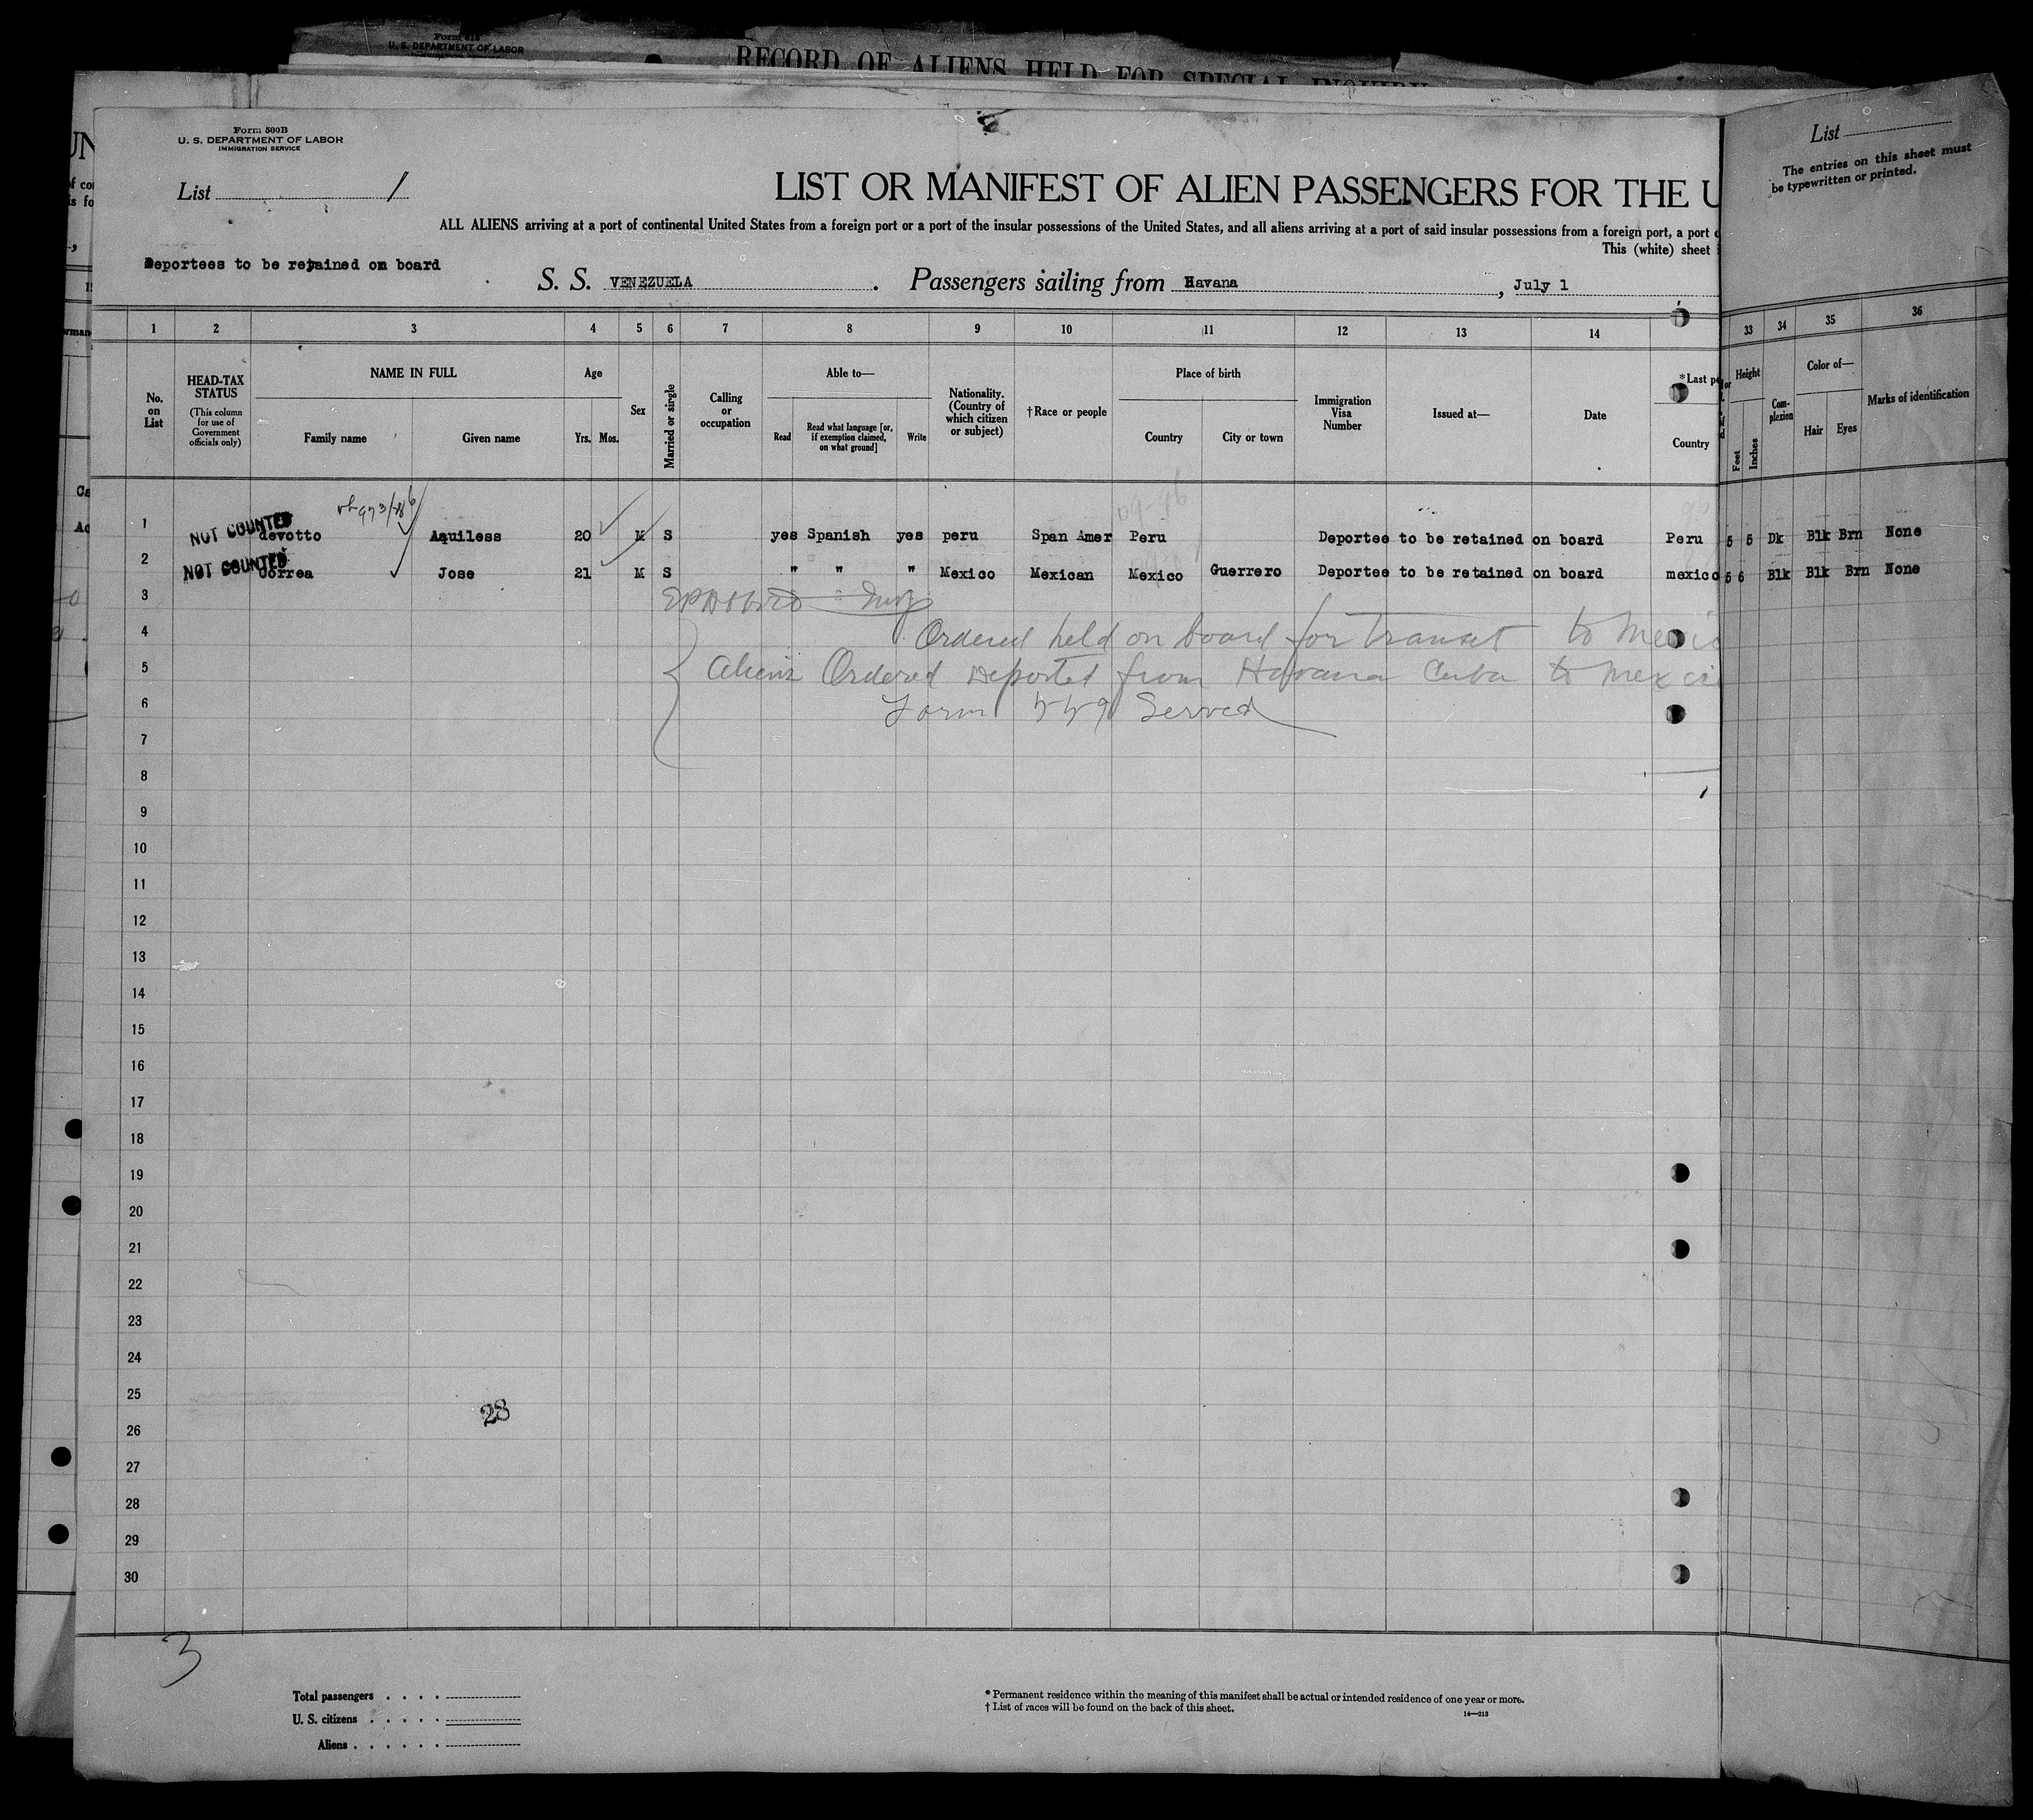 Form 519
U. S. DEPARTMENT OF LABOR
RECORD OF ALIENS HELD FOR SPECIAL INQUIRY
Form 500B
U. S. DEPARTMENT OF LABOR
IMMIGRATION SERVICE
List 1
LIST OR MANIFEST OF ALIEN PASSENGERS FOR THE U
ALL ALIENS arriving at a port of continental United States from a foreign port or a port of the insular possessions of the United States, and all aliens arriving at a port of said insular possessions from a foreign port, a port
This (white) sheet
Deportees to be retained on board
S. S. VENEZUELA. Passengers sailing from Havana, July 1
List
The entries on this sheet must
be typewritten or printed.
1 2 3 4 5 6 7 8 9 10 11 12 13 14 33 34 35 36
No. on List
HEAD-TAX STATUS (This column for use of Government officials only)
NAME IN FULL
Family name Given name
Age
Yrs. Mos.
Sex
Married or single
Calling or occupation
Able to—
Read Read what language [or, if exemption claimed, on what ground] Write
Nationality. (Country of which citizen or subject)
†Race or people
Place of birth
Country City or town
Immigration Visa Number
Issued at—
Date
*Last pe
Country
Height
Feet Inches
Complexion
Color of—
Hair Eyes
Marks of identification
1 NOT COUNTED devotto Aquiless 20 M S yes Spanish yes peru Span Amer Peru Deportee to be retained on board Peru 5 5 Dk Blk Brn None
2 NOT COUNTED Correa Jose 21 M S " " " Mexico Mexican Mexico Guerrero Deportee to be retained on board mexico 5 6 Blk Blk Brn None
3
4 Ordered held on board for transit to Mexic
5 Aliens Ordered Deported from Havana Cuba to Mexic
6 Form Served
7
8
9
10
11
12
13
14
15
16
17
18
19
20
21
22
23
24
25
28
26
27
28
29
30
3
Total passengers . . . .
U. S. citizens . . . . .
Aliens . . . . . .
* Permanent residence within the meaning of this manifest shall be actual or intended residence of one year or more.
† List of races will be found on the back of this sheet.
14—213